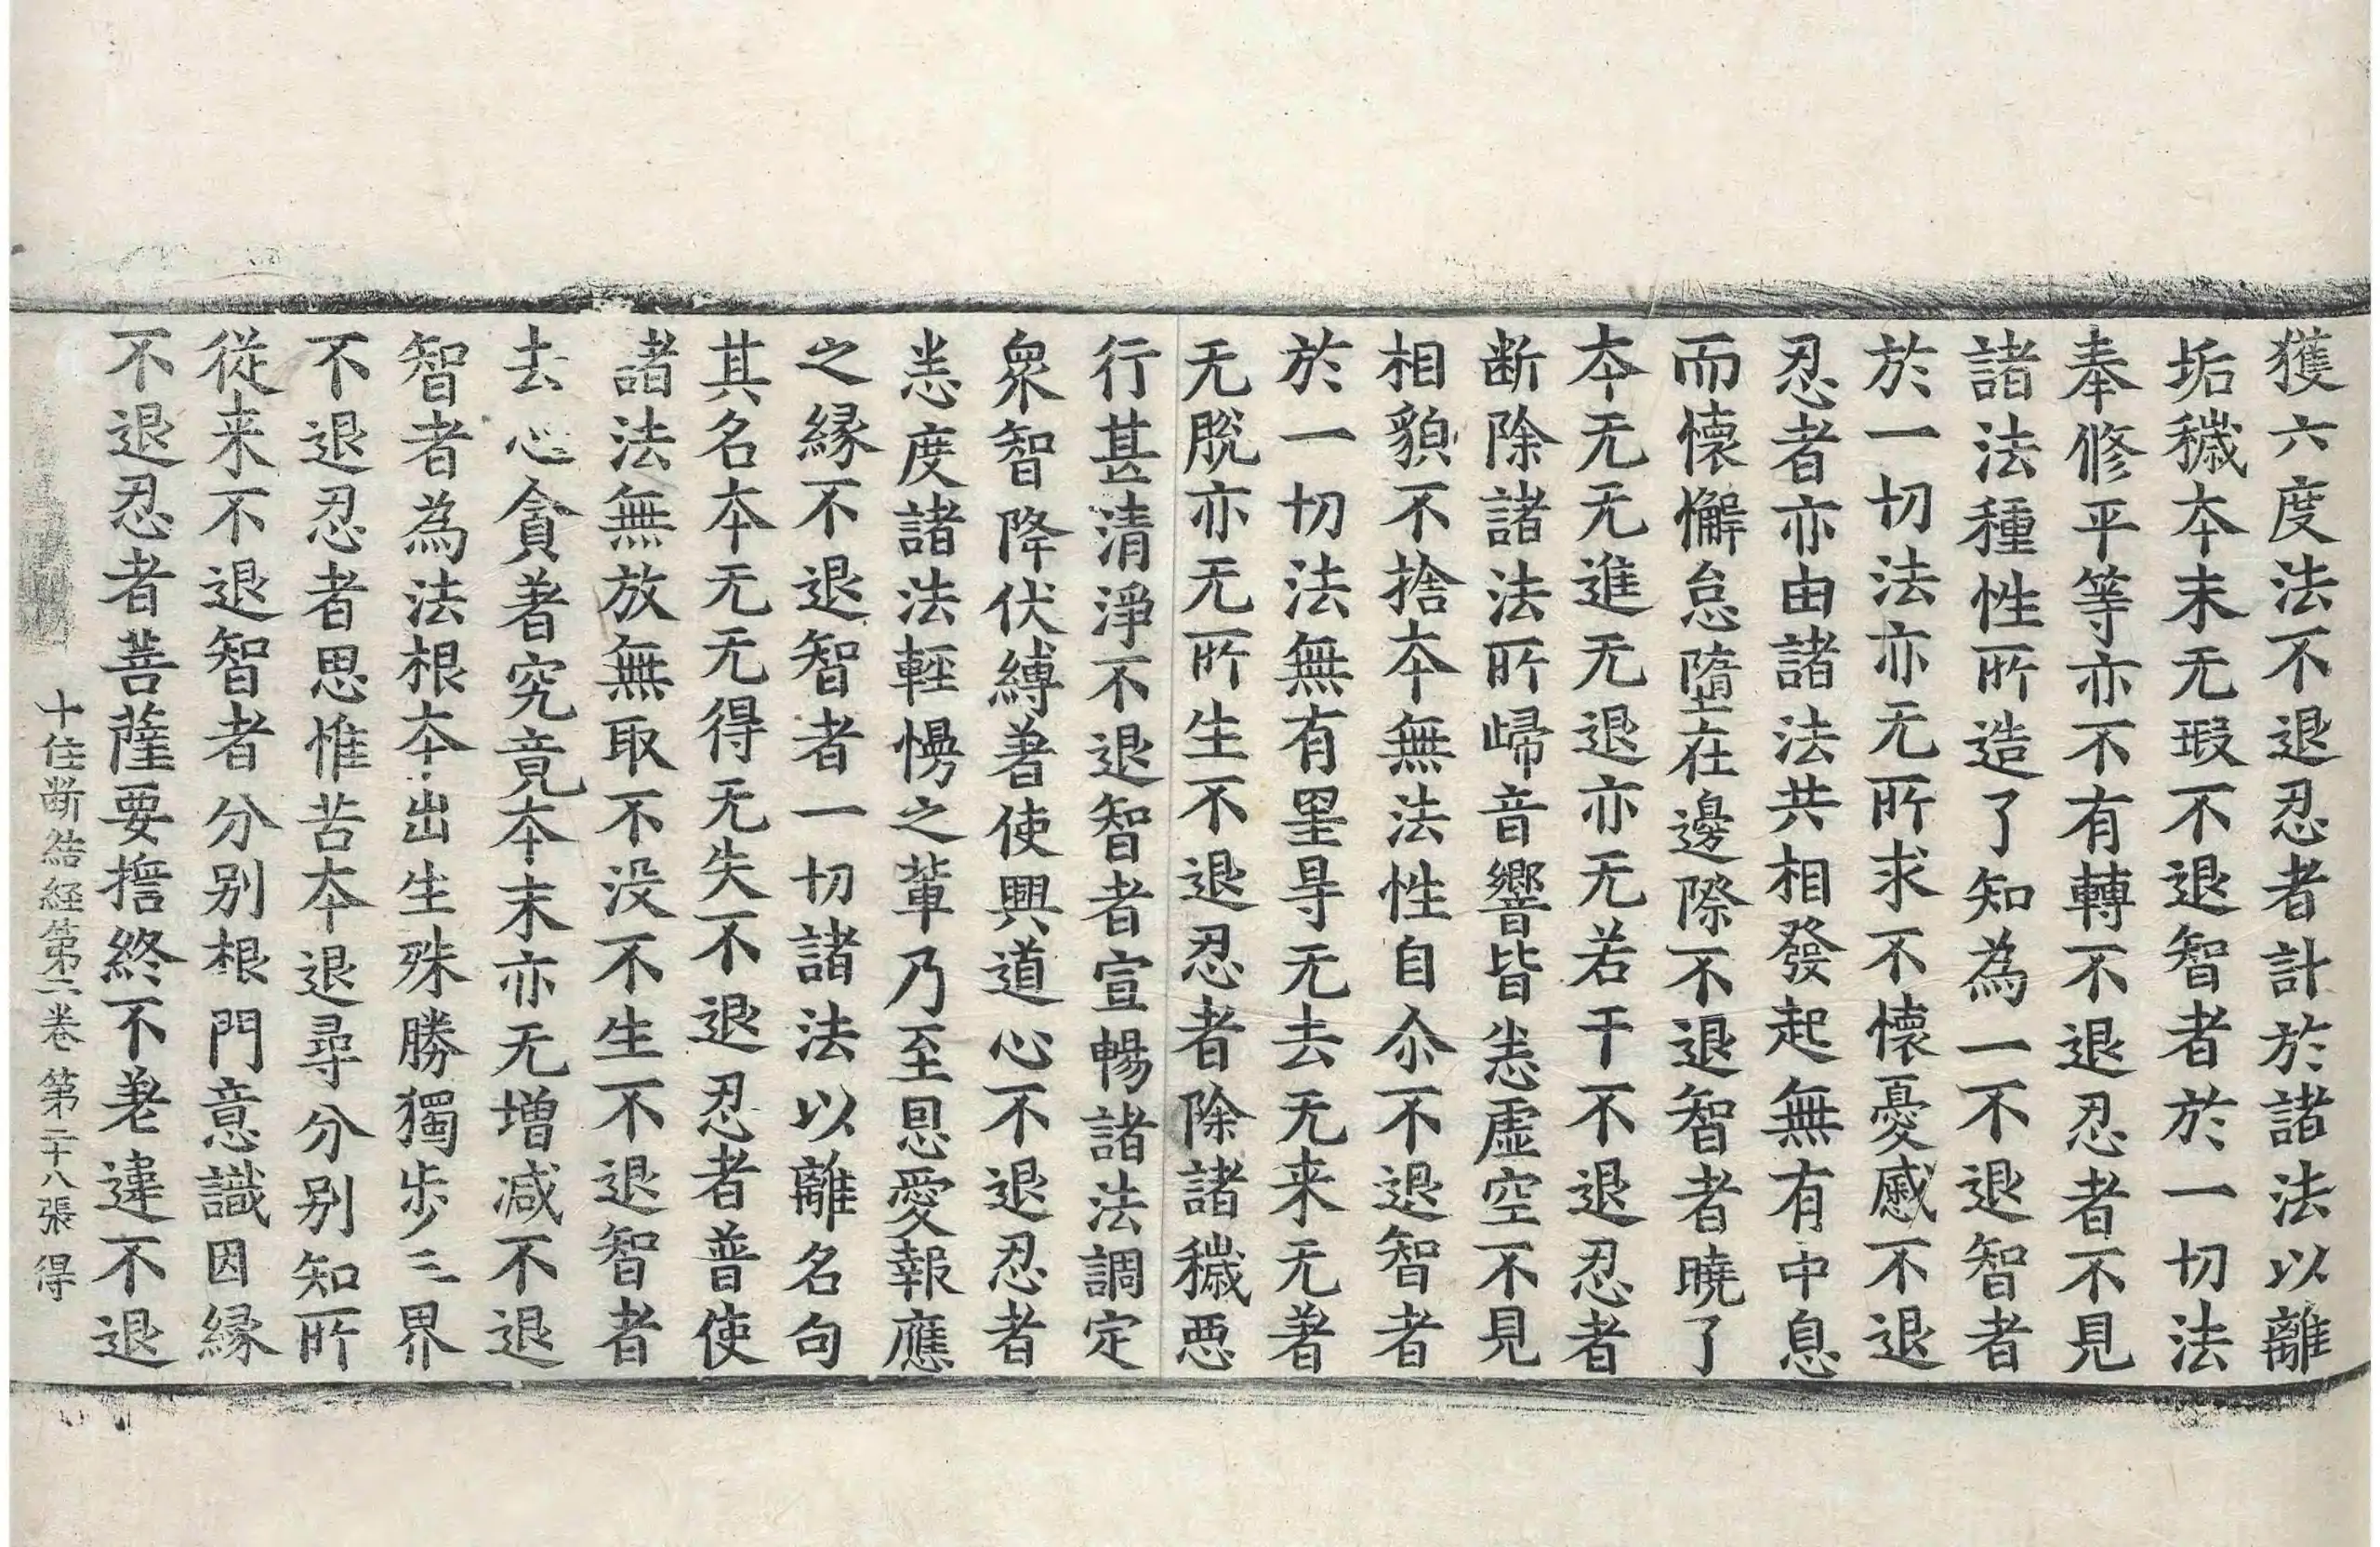 獲六度法不退忍者計於諸法以離
垢穢本末无瑕不退智者於一切法
奉修平等亦不有轉不退忍者不見
諸法種性所造了知為一不退智者
於一切法亦无所求不懷憂慼不退
忍者亦由諸法共相發起無有中息
而懷懈怠墮在邊際不退智者曉了
本无无進无退亦无若干不退忍者
断除諸法所歸音響皆悉虛空不見
相貌不捨本無法性自尒不退智者
於一切法無有罣㝵无去无来无著
无脫亦无所生不退忍者除諸穢惡
行甚清淨不退智者宣暢諸法調定
眾智降伏縛著使興道心不退忍者
悉度諸法輕慢之輩乃至恩愛報應
之緣不退智者一切諸法以離名句
其名本无无得无失不退忍者普使
諸法無放無取不没不生不退智者
去心貪著究竟本末亦无增减不退
智者為法根本出生殊勝獨步三界
不退忍者思惟苦本退尋分别知所
從来不退智者分别根門意識因緣
不退忍者菩薩要擔終不差違不退
十住断結経第二卷 第二十八張 得